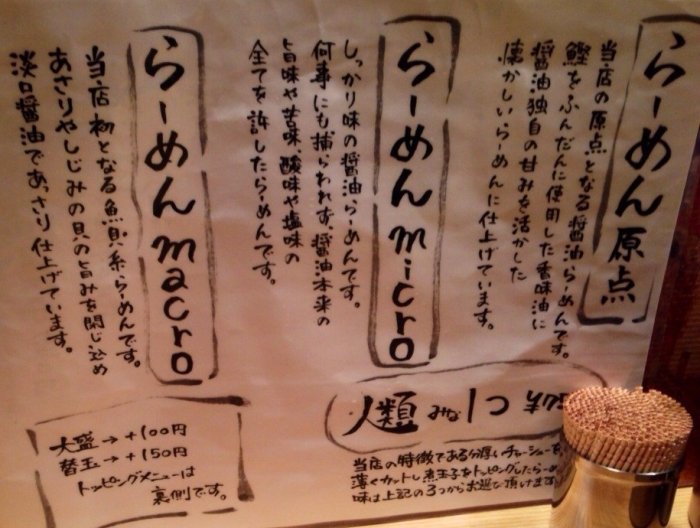 らーめん原点
当店の原点となる醤油らーめんです。
鰹をふんだんに使用した香味油に
醤油独自の甘みを活かした
懐かしいらーめんに仕上げています。
らーめん micro
しっかり味の醤油らーめんです。
何事にも捕らわれず、醤油本来の
旨味や苦味、酸味や塩味の
全てを許したらーめんです。
らーめん macro
当店初となる魚貝系らーめんです。
あさりやしじみの貝の旨みを閉じ込め
淡口醤油であっさり仕上げています。
人類みな
当店の特徴である分厚いチャーシューを
薄くカットし煮玉子をトッピングしたらーめ
味は上記の3つからお選び頂けます
大盛→+100円
替玉→+150円
トッピングメニューは
裏側です。